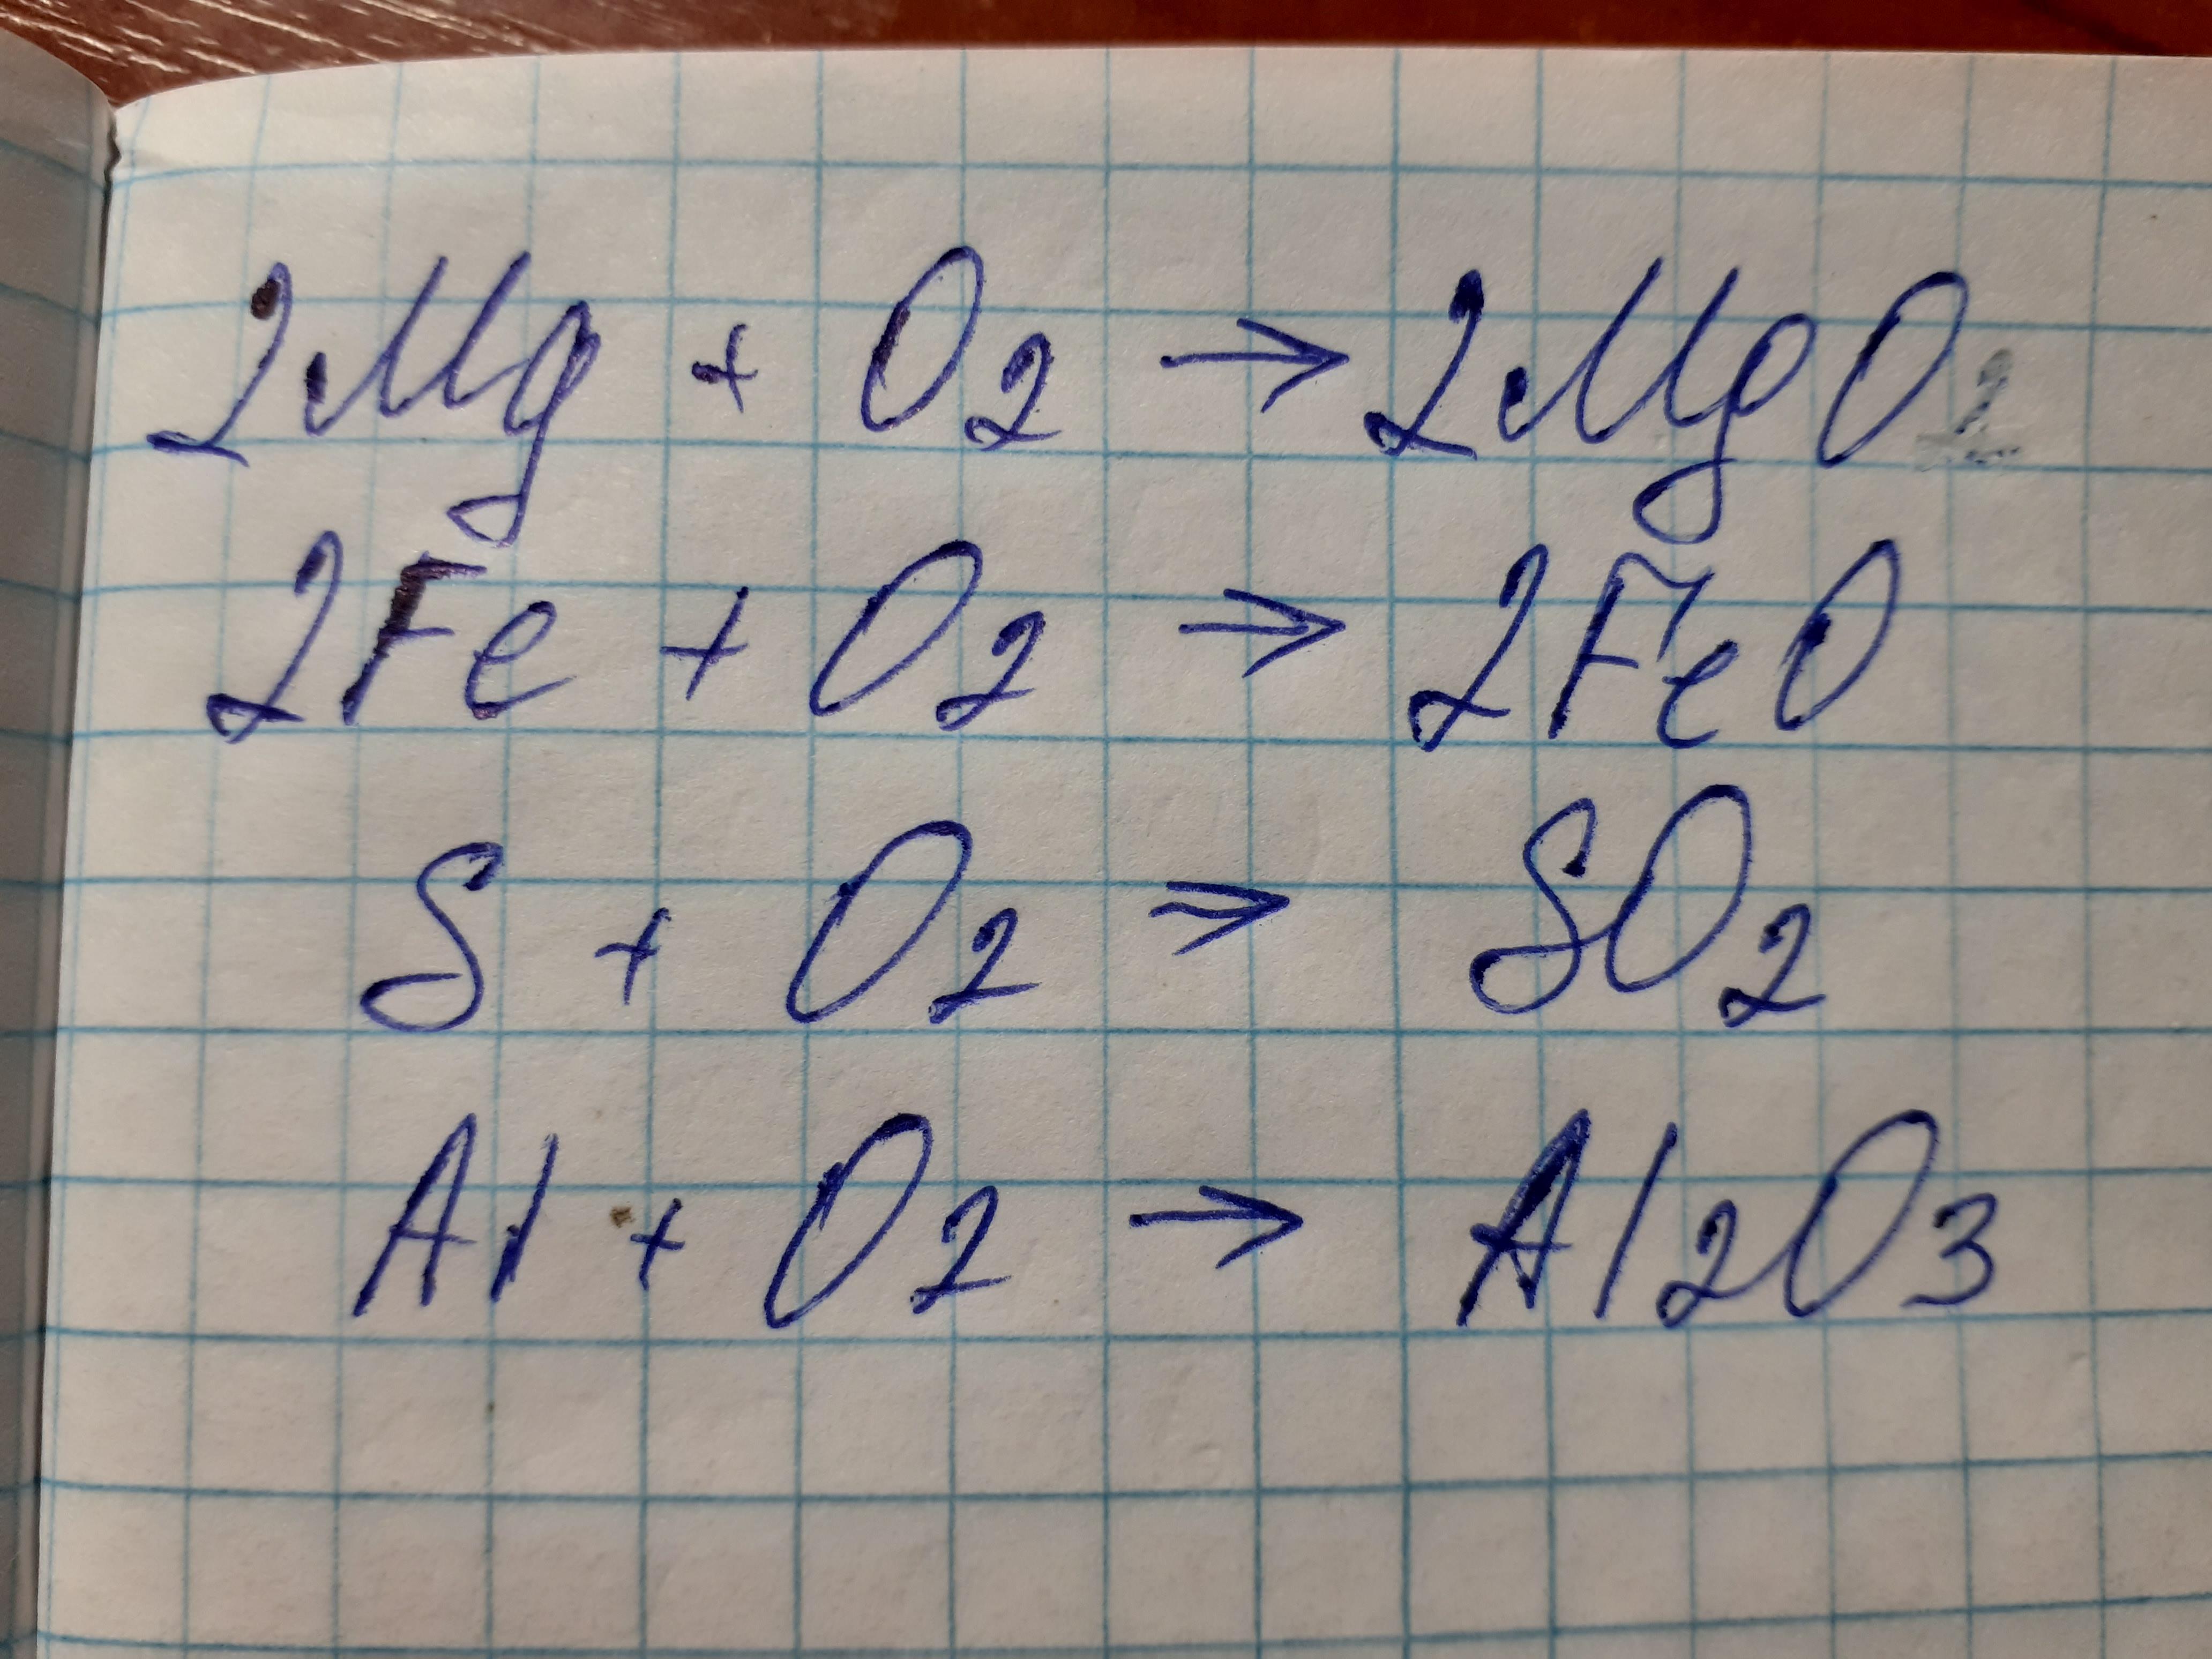 2Mg + O₂ → 2MgO
2Fe + O₂ → 2FeO
S + O₂ → SO₂
Al + O₂ → Al₂O₃